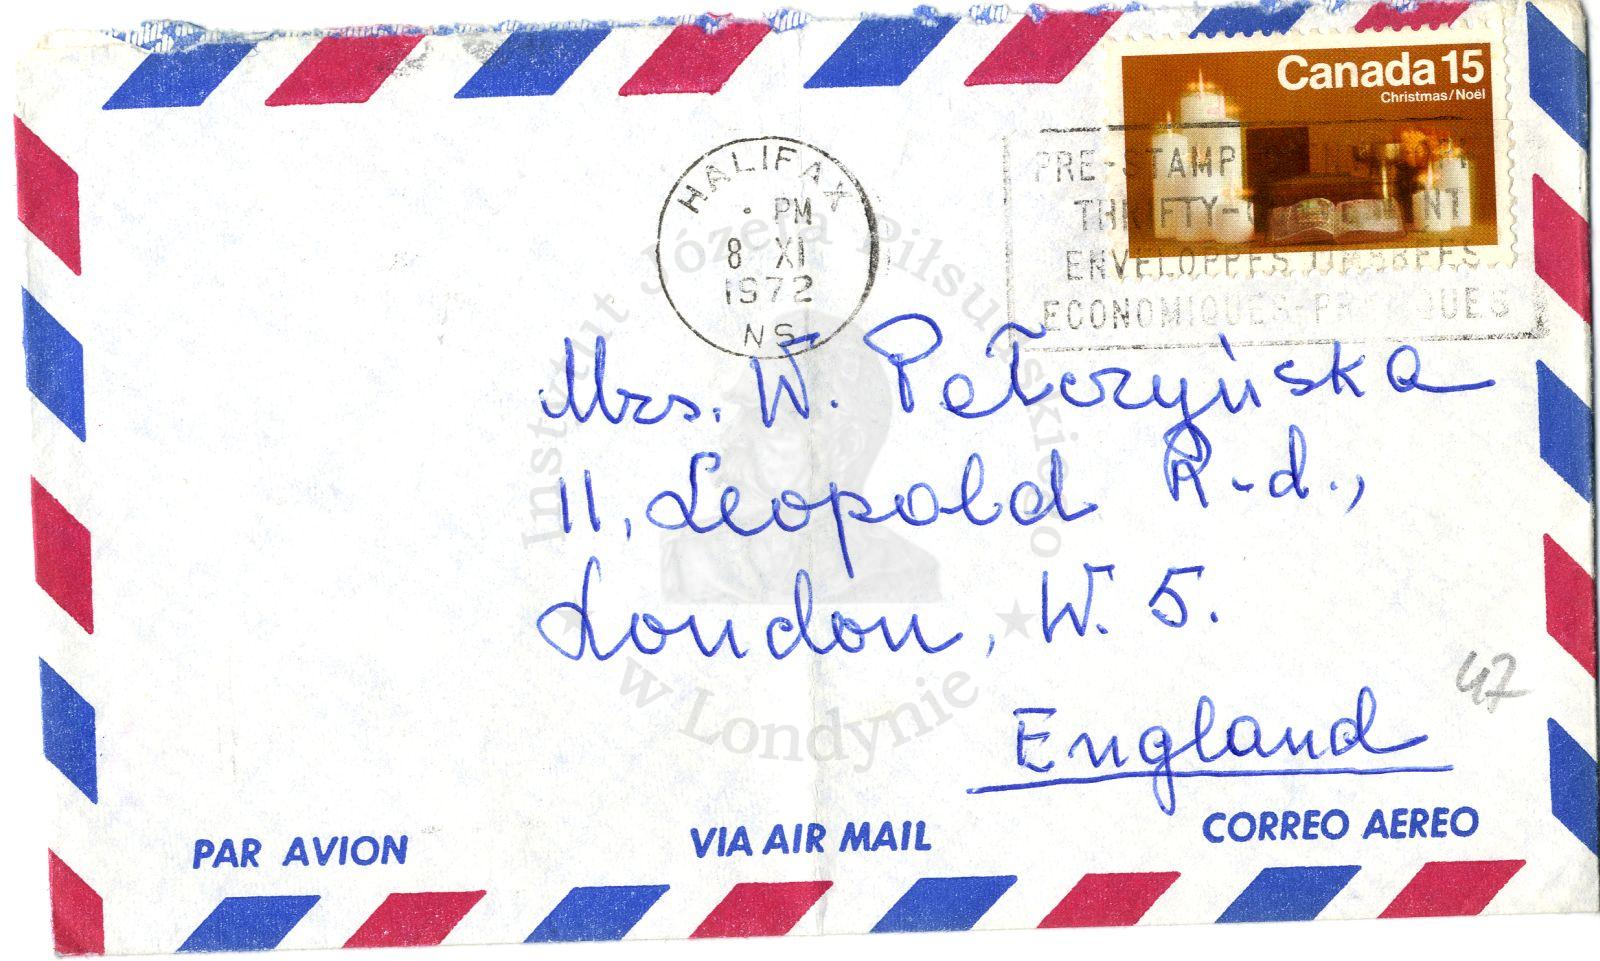 Canada 15
Christmas/Noël
HALIFAX
PM
8 XI
1972
NS
PRE-STAMP
THRIFTY-CONVENIENT
ENVELOPPES TIMBRÉES
ECONOMIQUES-PRATIQUES
Mrs. W. Pełczyńska
11, Leopold R-d.,
London, W. 5.
England
47
PAR AVION
VIA AIR MAIL
CORREO AEREO
Instytut Józefa Piłsudskiego
w Londynie